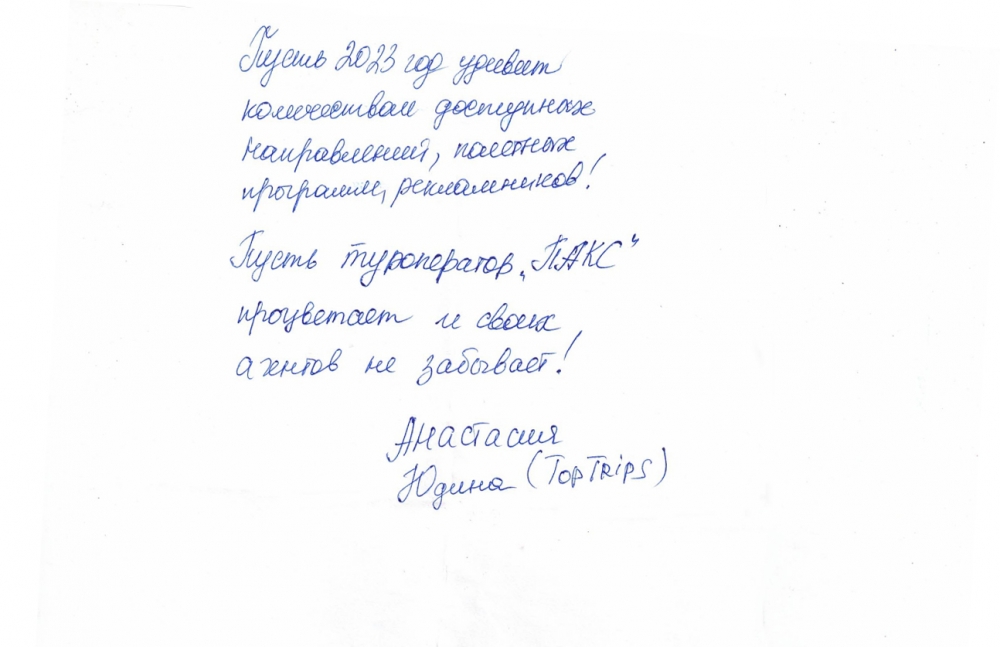 Пусть 2023 год удивит
количеством доступных
направлений, полетных
программ, рекламников!
Пусть туроператор „ПАКС“
процветает и своих
агентов не забывает!
Анастасия
Юдина (TopTrips)